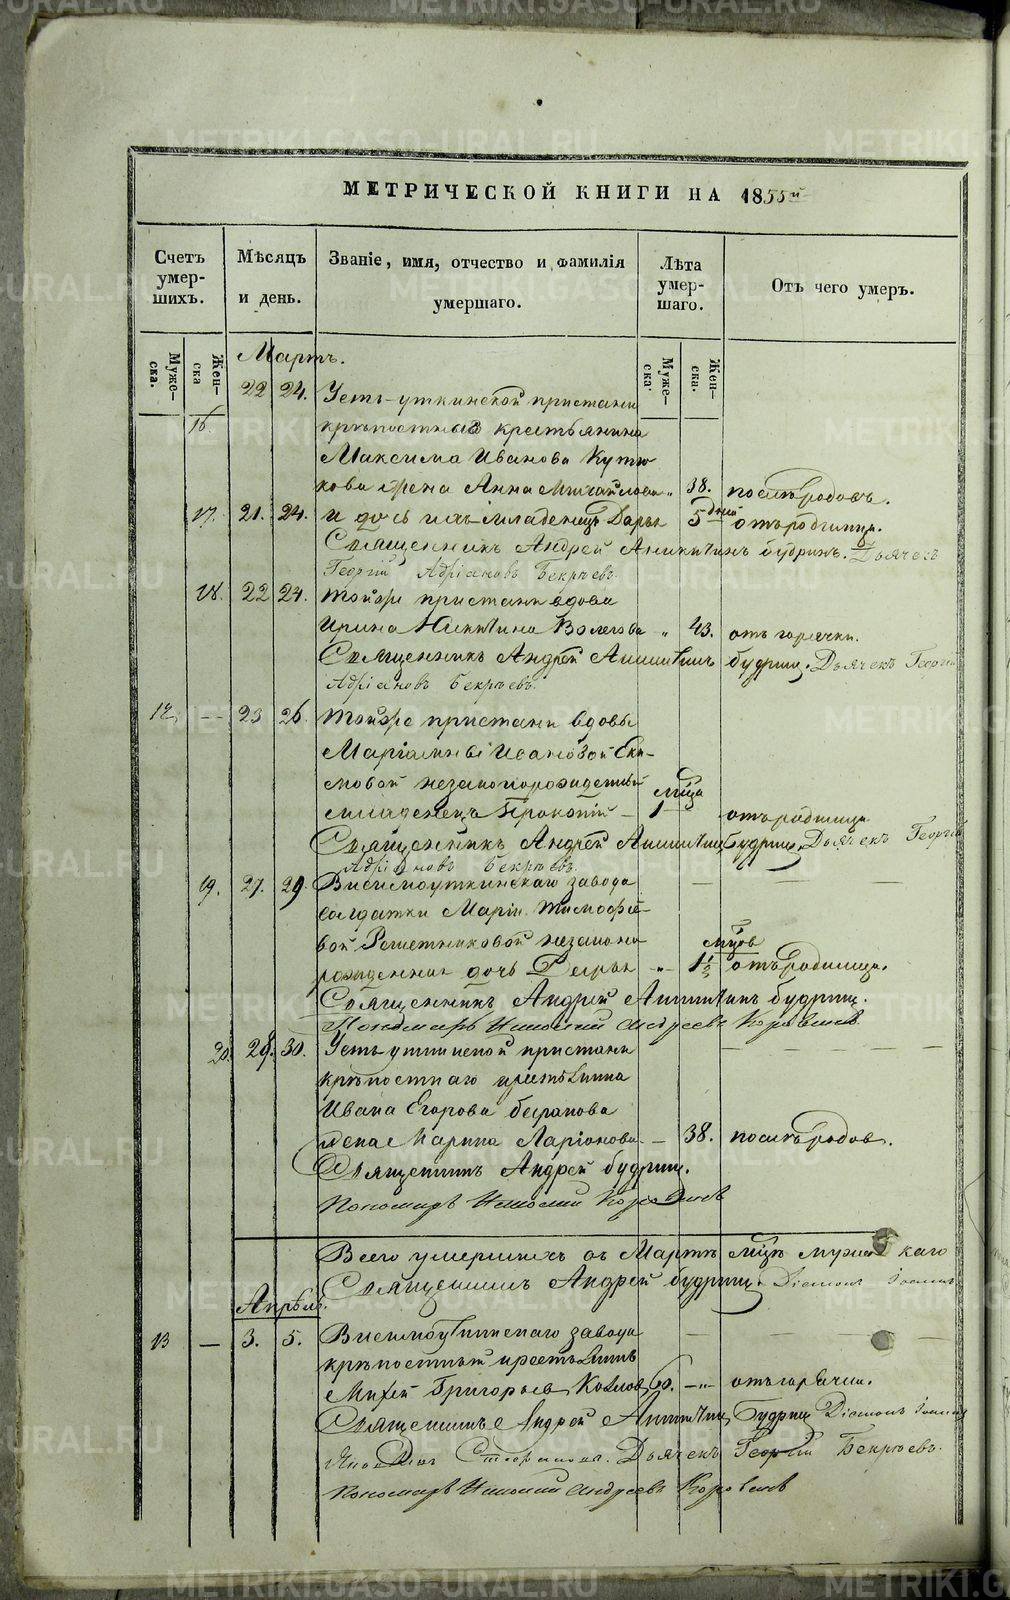 МЕТРИЧЕСКОЙ КНИГИ НА 1855й
Счетъ умер- шихъ.
Мѣсяцъ и день.
Званіе, имя, отчество и фамилія умершаго.
Лѣта умер- шаго.
Отъ чего умеръ.
Муже- ска.
Жен- ска
Муже- ска.
Жен- ска.
Мартъ.
22 24. Усть-уткинской пристани
16. крѣпостнаго крестьянина
Максима Иванова
кова жена Анна Михайлова „ 38. послѣ родовъ.
17. 21. 24. и дочь ихъ младенецъ Дарья 5 дней отъ родимца.
Священникъ Андрей Аникитинъ Будринъ. Дьячекъ
Георгій Адріановъ Бекрѣевъ.
18. 22 24. тойже пристани вдова
Ирина Никитина „ 43. отъ горячки.
Священникъ Андрей Аникитинъ Будринъ. Дьячекъ Георгій
Адріановъ Бекрѣевъ.
12. — 23 26. тойже пристани вдовы
Маріамны Ивановой Еки-
мовой незаконорожденный
младенецъ Прокопій — 1 мсца отъ родимца
Священникъ Андрей Аникитинъ Будринъ. Дьячекъ Георгій
Адріановъ Бекрѣевъ.
19. 27. 29. Висимоуткинскаго завода
солдатки Маріи Тимофѣе-
вой Решетниковой незаконо
рожденная дочь „ 1½ мсцовъ отъ родимца.
Священникъ Андрей Аникитинъ Будринъ.
Пономарь Николай Андреевъ Коровинъ
20. 28. 30. Усть уткинской пристани
крѣпостнаго крестьянина
Ивана Егорова
жена Марина Ларіонова — 38. послѣ родов.
Священникъ Андрей Будринъ.
Пономарь Николай Коровинъ
Всего умершихъ въ Мартѣ мсцѣ мужескаго
Священникъ Андрей Будринъ. Діаконъ Іоаннъ
Апрѣль.
13 — 3. 5. Висимоуткинскаго завода
крѣпостный крестьянинъ
Михей Григорьев Козлов 60. —„— отъ горячки.
Священникъ Андрей Аникитинъ Будринъ Діаконъ Іоаннъ
Дьячекъ Георгій Бекрѣевъ.
Пономарь Николай Андреевъ Коровинъ
METRIKI.GASO-URAL.RU